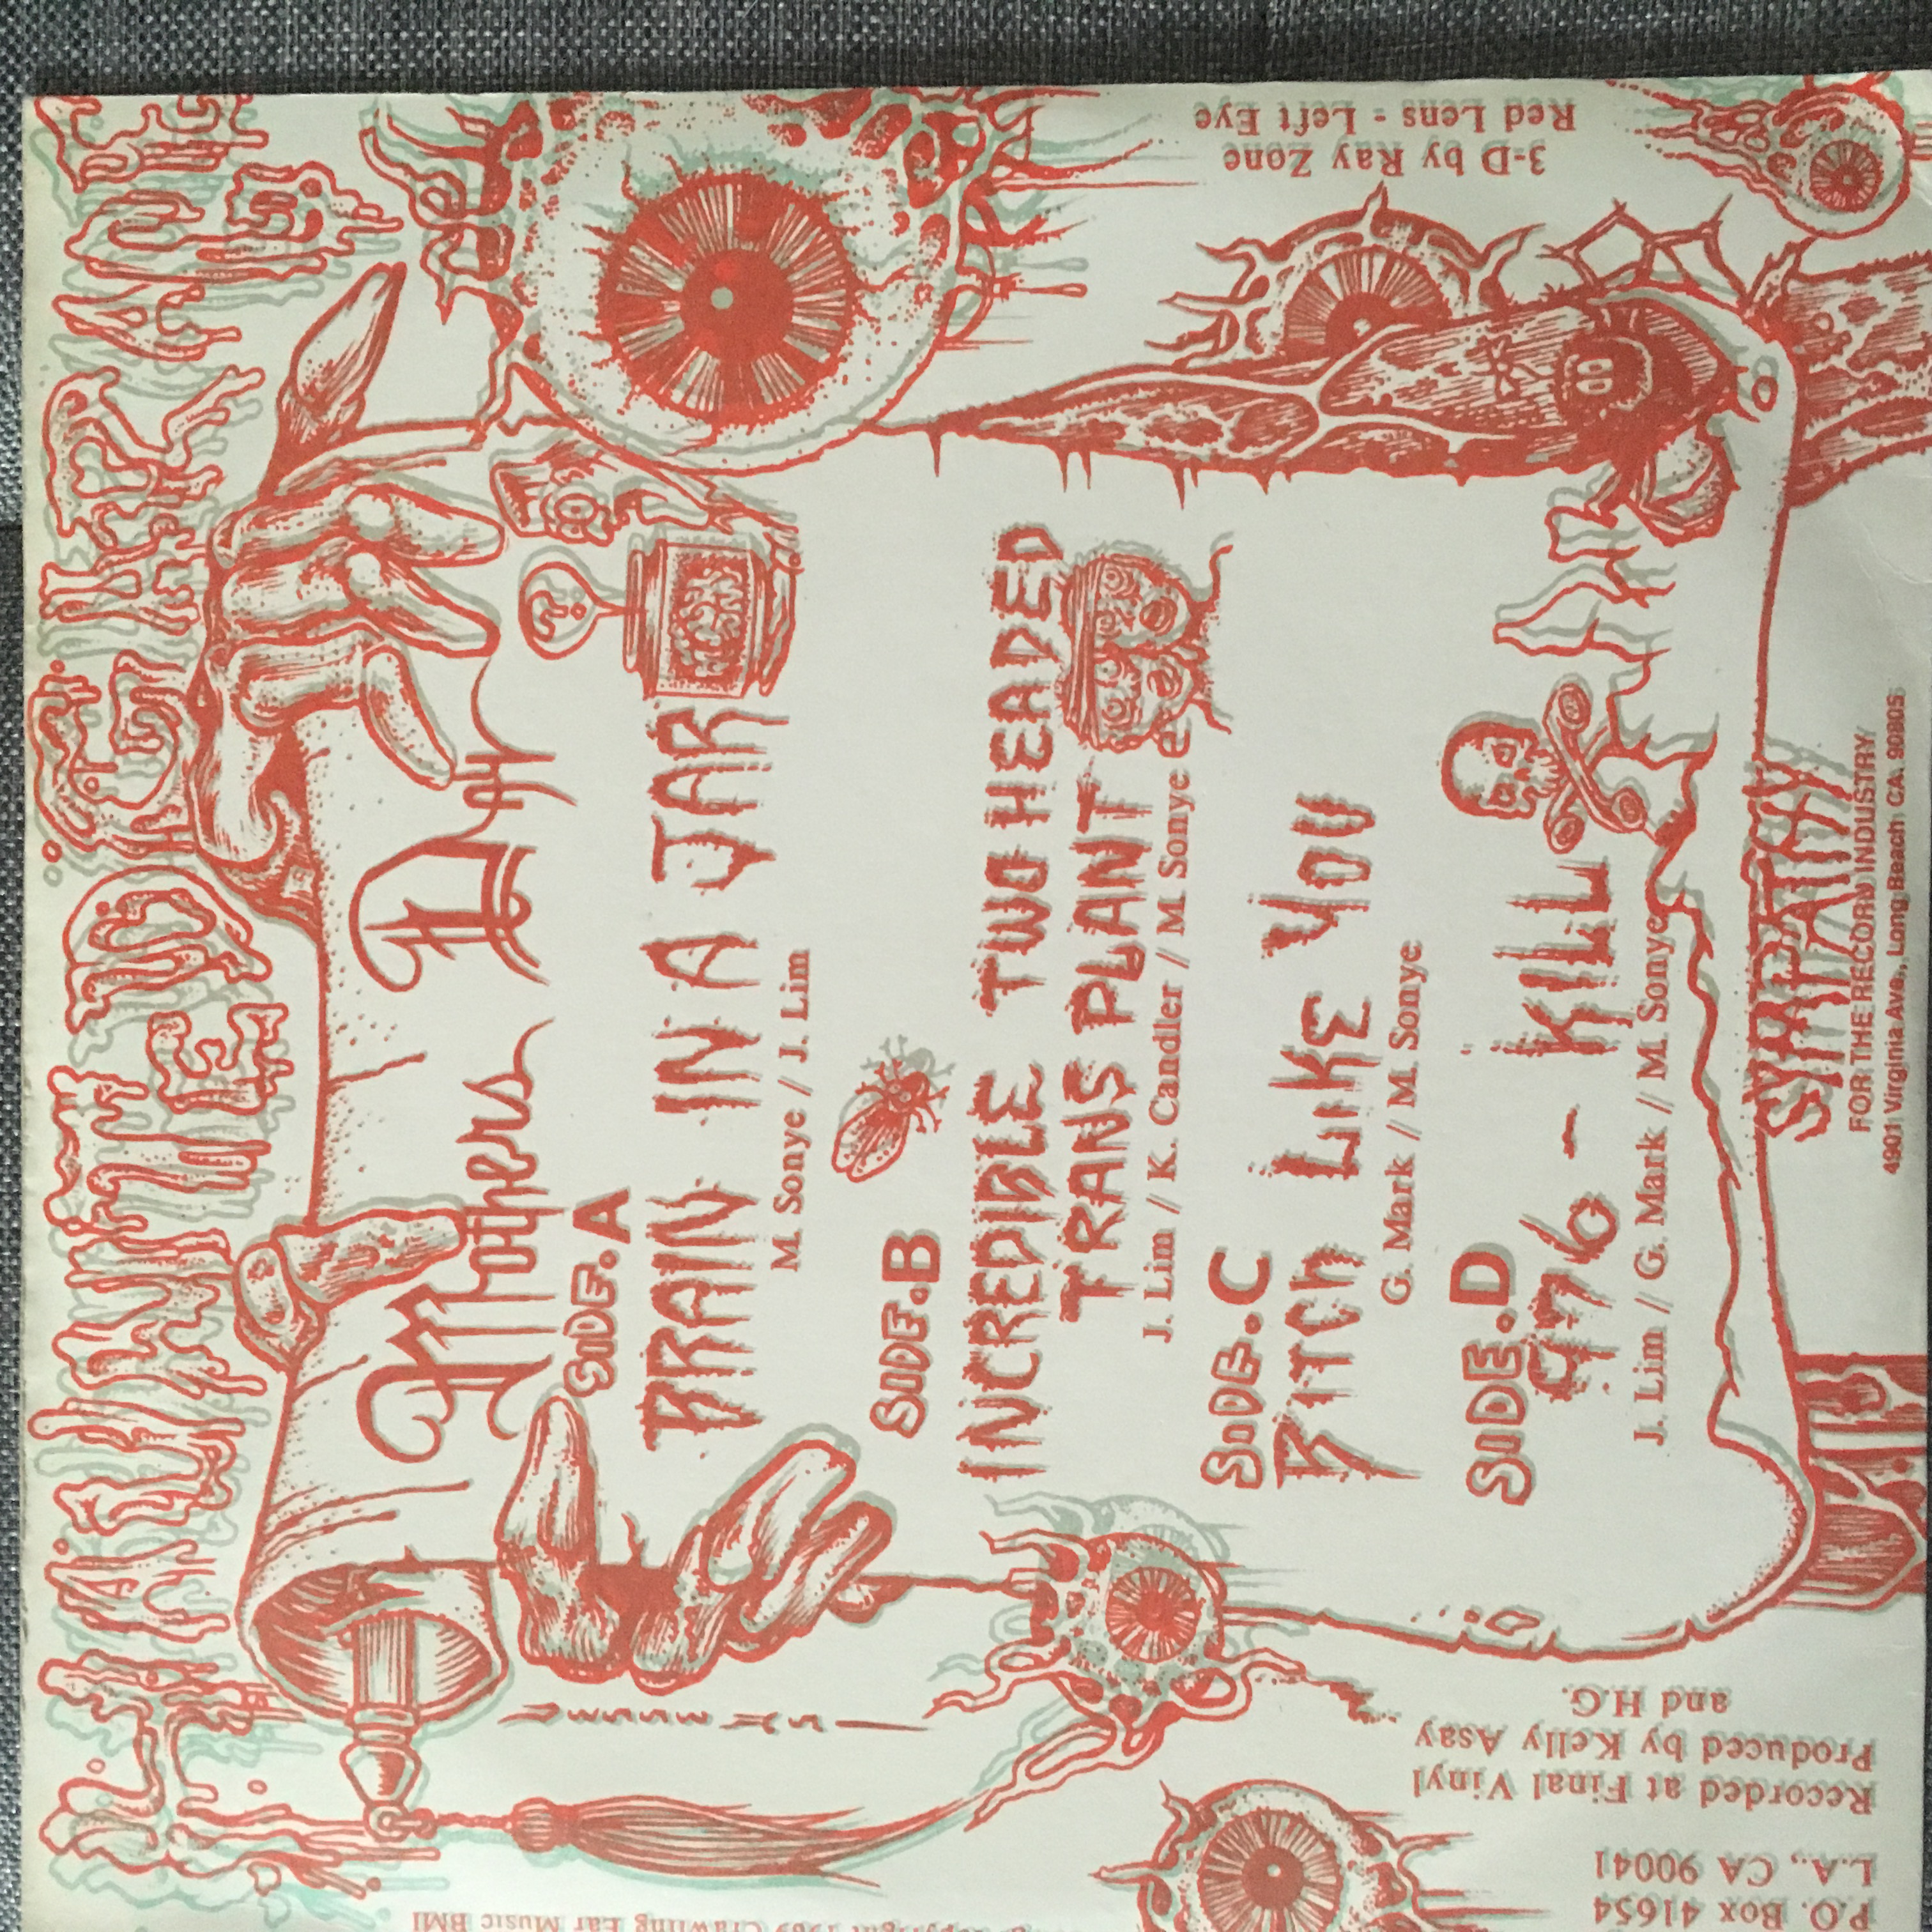 HAUNTED GARAGE
Mothers Day
SIDE.A
BRAIN IN A JAR
M. Sonye // J. Lim
SIDE.B
INCREDIBLE TWO HEADED
TRANS PLANT
J. Lim // K. Candler // M. Sonye
SIDE.C
BITCH LIKE YOU
G. Mark // M. Sonye
SIDE.D
976 - KILL
J. Lim // G. Mark // M. Sonye
SYMPATHY
FOR THE RECORD INDUSTRY
4901 Virginia Ave., Long Beach CA. 90805
3-D by Ray Zone
Red Lens = Left Eye
1989 Crawling Ear Music BMI
P.O. Box 41654
L.A., CA 90041
Recorded at Final Vinyl
Produced by Kelly Asay
and H.G.